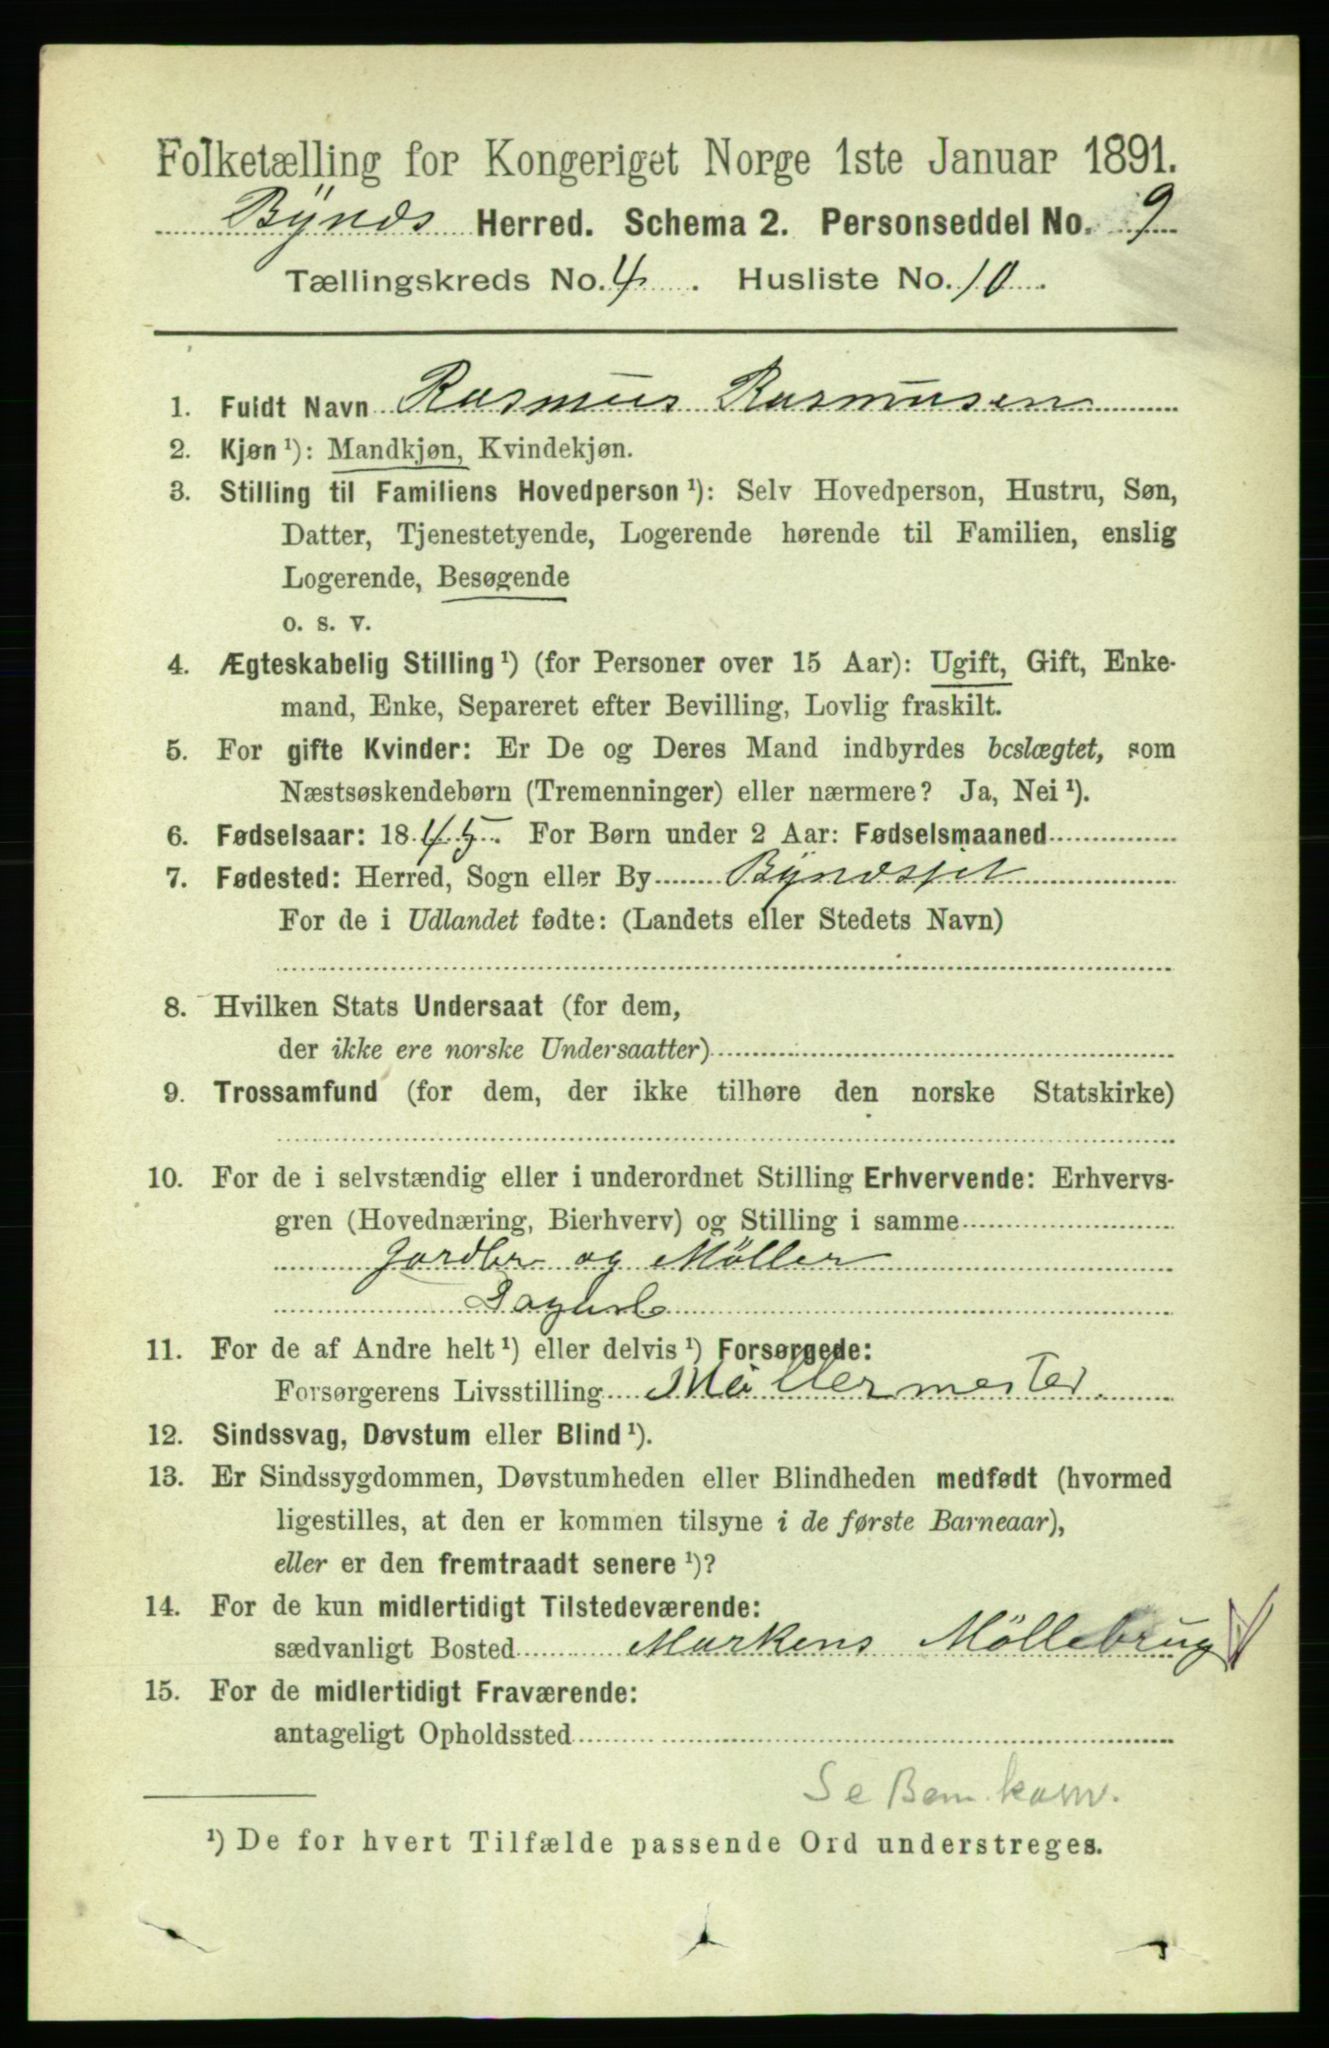 Folketælling for Kongeriget Norge 1ste Januar 1891.
Bynds Herred. Schema 2. Personseddel No. 9
Tællingskreds No. 4. Husliste No. 10.
1. Fuldt Navn Rasmus Rasmusen
2. Kjøn ¹): Mandkjøn, Kvindekjøn.
3. Stilling til Familiens Hovedperson ¹): Selv Hovedperson, Hustru, Søn,
Datter, Tjenestetyende, Logerende hørende til Familien, enslig
Logerende, Besøgende
o. s. v.
4. Ægteskabelig Stilling ¹) (for Personer over 15 Aar): Ugift, Gift, Enke-
mand, Enke, Separeret efter Bevilling, Lovlig fraskilt.
5. For gifte Kvinder: Er De og Deres Mand indbyrdes beslægtet, som
Næstsøskendebørn (Tremenninger) eller nærmere? Ja, Nei ¹).
6. Fødselsaar: 1845. For Børn under 2 Aar: Fødselsmaaned
7. Fødested: Herred, Sogn eller By Byndsset
For de i Udlandet fødte: (Landets eller Stedets Navn)
8. Hvilken Stats Undersaat (for dem,
der ikke ere norske Undersaatter)
9. Trossamfund (for dem, der ikke tilhøre den norske Statskirke)
10. For de i selvstændig eller i underordnet Stilling Erhvervende: Erhvervs-
gren (Hovednæring, Bierhverv) og Stilling i samme
Jordbr og Møller
11. For de af Andre helt ¹) eller delvis ¹) Forsørgede:
Forsørgerens Livsstilling Møllermester.
12. Sindssvag, Døvstum eller Blind ¹).
13. Er Sindssygdommen, Døvstumheden eller Blindheden medfødt (hvormed
ligestilles, at den er kommen tilsyne i de første Barneaar),
eller er den fremtraadt senere ¹)?
14. For de kun midlertidigt Tilstedeværende:
sædvanligt Bosted Markens Möllebrug
15. For de midlertidigt Fraværende:
antageligt Opholdssted
Se Bem. kom.
¹) De for hvert Tilfælde passende Ord understreges.